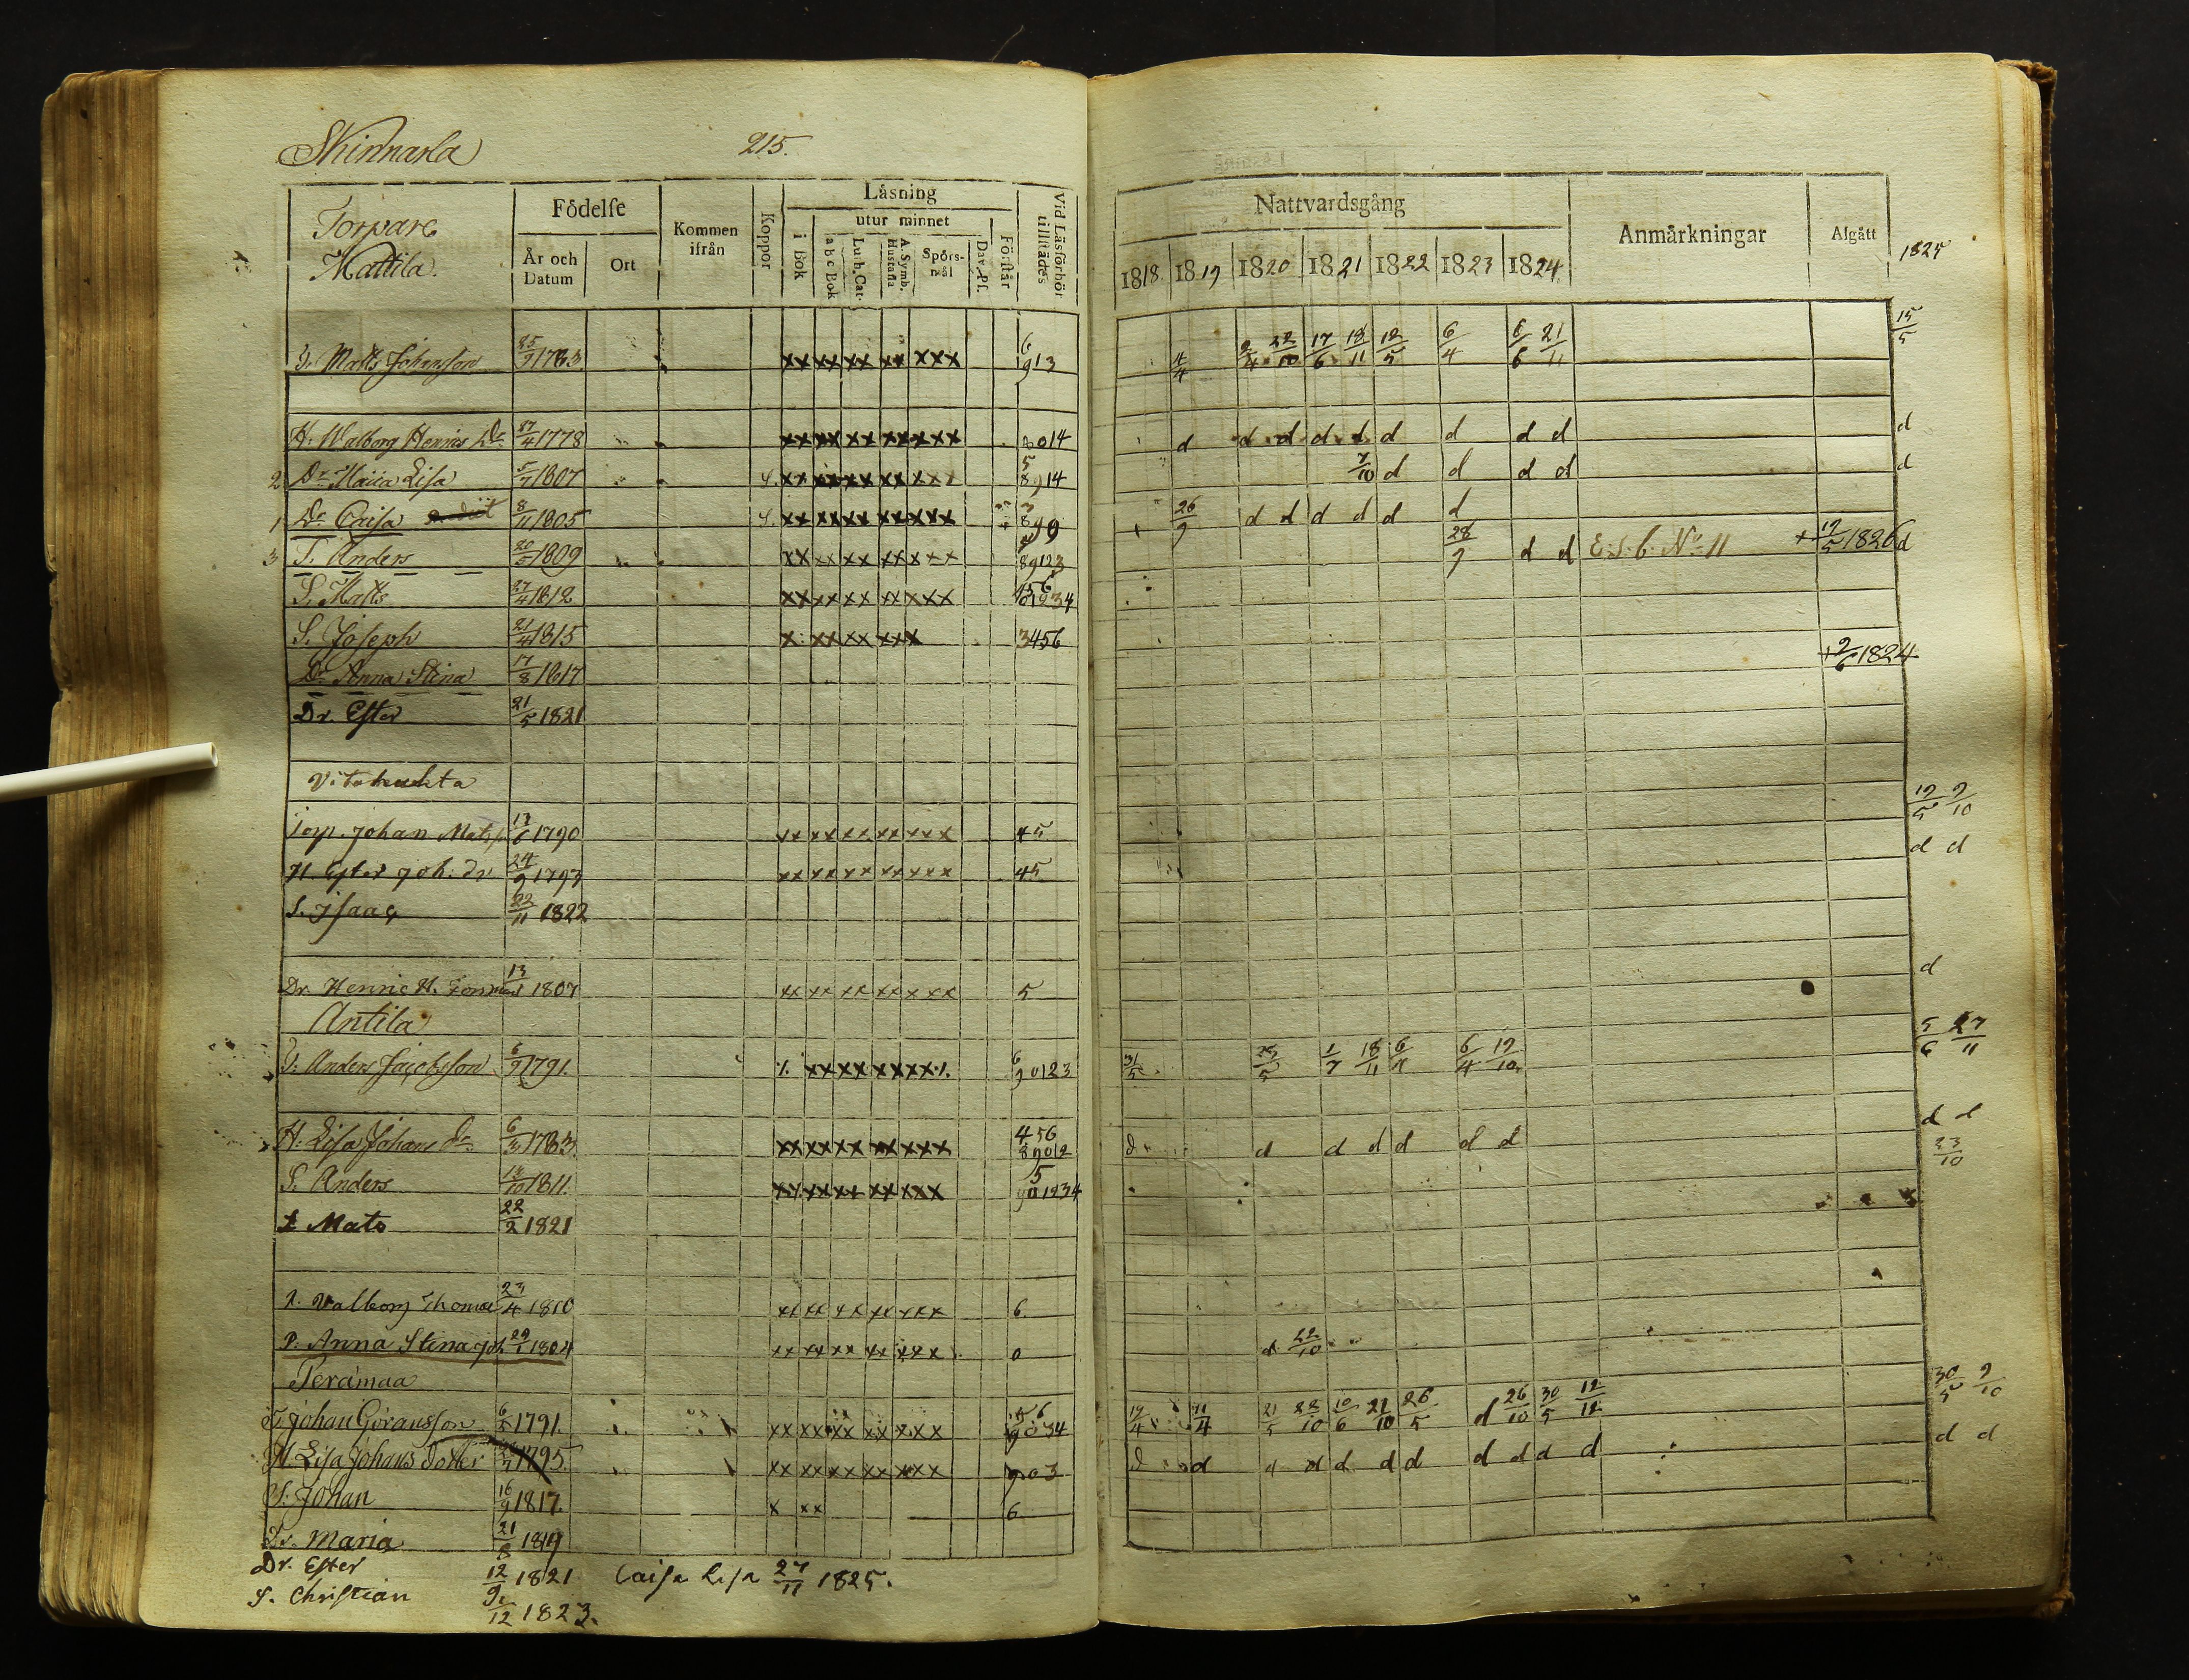 Skinnarla 215.
Torpare
Mattila.
Födelse
År och Datum
Ort
Kommen ifrån
Koppor
Läsning
i Bok
utur minnet
a b c Bok
Luth. Cat.
A. Symb. Hustafla
Spörsmål
Dav. Ps.
Förstår
Vid Läsförhör tillstädes
T. Matts Johansson 25/9 1763 xx xx xx xx xxx 6 913
H. Walborg Henrics Dr 27/4 1778 xx xx xx xx xxx 8014
2 Dr Maija Lisa 5/7 1807 4 xx xx xx xx xxx 5 8914
1 Dr Caisa 8/11 1805 4 xx xx xx xx xxx 3
3 S. Anders 20/5 1809 xx xx xx xx xxx 89123
S. Matts 27/4 1812 xx xx xx xx xxx
S. Joseph 21/4 1815 x xx xx xx x 3456
Dr Anna Stina 17/8 1817
Dr. Ester 21/5 1821
Vitahuhta
Torp. Johan Mats s. 13/6 1790 xx xx xx xx xxx 45
H. Ester Joh. dr 24/9 1793 xx xx xx xx xxx 45
S. Isaac 22/11 1822
Dr. Henric H. 13/ 1807 xx xx xx xx xxx 5
Antila
T. Anders Jacobsson 6/7 1791. 6 90123
H. Lisa Johans dr. 6/3 1783 xx xx xx xx xxx 456 89012
S. Anders 13/10 1811. xx xx xx xx xxx 5 901234
S. Mats 22/2 1821
P. Valborg Thomae 23/4 1810 xx xx xx xx xxx 6.
P. Anna Stina Joh. 29/1 1804 xx xx xx xx xxx 0
Perämaa
T. Johan Göransson 6/5 1791. xx xx xx xx xxx 56 9034
H. Lisa Johans dotter 1795. xx xx xx xx xxx 903
S. Johan 16/9 1817. x xx 6
Dr. Maria 21/8 1819
Dr. Ester 12/9 1821 Caisa Lisa 27/11 1825.
S. Christian 1/12 1823.
Nattvardsgång
Anmärkningar
Afgått
1818. 1819 1820 1821 1822 1823 1824. 1825
4/4 2/4 22/10 17/6 18/11 12/5 6/4 6/6 21/11 15/5
d d d d d d d d d d
7/10 d d d d d
26/9 d d d d d d
28/9 d d E. S. b. No 11 + 19/5 1826 d
+ 2/6 1824
19/5 9/10
d d
d
31/5 25/5 1/7 18/11 6/4 6/4 19/10 5/6 27/11
d d d d d d d d d
23/10
d 22/10
19/4 11/4 21/5 22/10 10/6 21/10 26/5 d 26/10 30/5 12/12 30/5 9/10
d d d d d d d d d d d d d